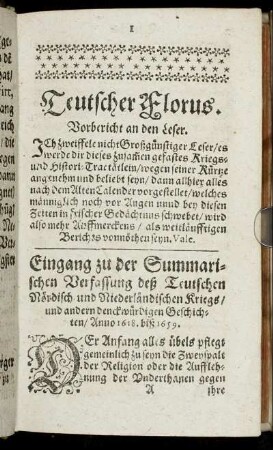 1
Teutscher Florus.
Vorbericht an den Leser.
ICh zweiffele nicht Großgünstiger Leser/ es
werde dir dieses zusamen gefastes Kriegs-
und Histori-Tractätlein/ wegen seiner Kürtze
angenehm und beliebt seyn/ dann allhier alles
nach dem Alten Calender vorgestellet/ welches
männiglich noch vor Augen unnd bey diesen
Zeiten in frischer Gedächtnus schwebet/ wird
also mehr Auffmerckens/ als weitläufftigen
Berichts vonnöthen seyn. Vale.
Eingang zu der Summari-
schen Verfassung deß Teutschen
Nordisch und Niederländischen Kriegs/
und andern denckwürdigen Geschich-
ten/ Anno 1618. biß 1659.
DEr Anfang alles übels pflegt
gemeinlich zu seyn die Zweyspalt
der Religion oder die Auffleh-
nung der Underthanen gegen
A ihre